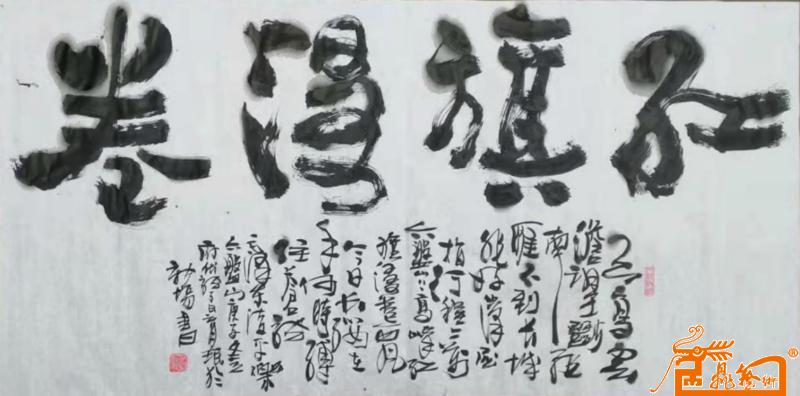 红旗漫卷
天高云
淡望断
南飞
雁不到长城
非好汉屈
指行程二万
六盘山上高峰红
旗漫卷西风
今日长缨在
手何时缚
住苍龙
毛泽东清平乐
六盘山庚子
书